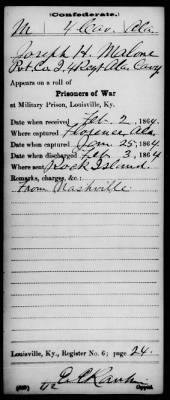 Confederate.
M 4 Cav. Ala.
Joseph H. Malone
Pvt. Co. I, 4 Regt. Ala. Cavy.
Appears on a roll of
Prisoners of War
at Military Prison, Louisville, Ky.
Date when received Feb. 2, 1864.
Where captured Florence Ala.
Date when captured Jan. 25, 1864.
Date when discharged Feb. 3, 1864
Where sent Rock Island.
Remarks, charges, &c.:
From Nashville
Louisville, Ky., Register No. 6; page 24.
Copyist.